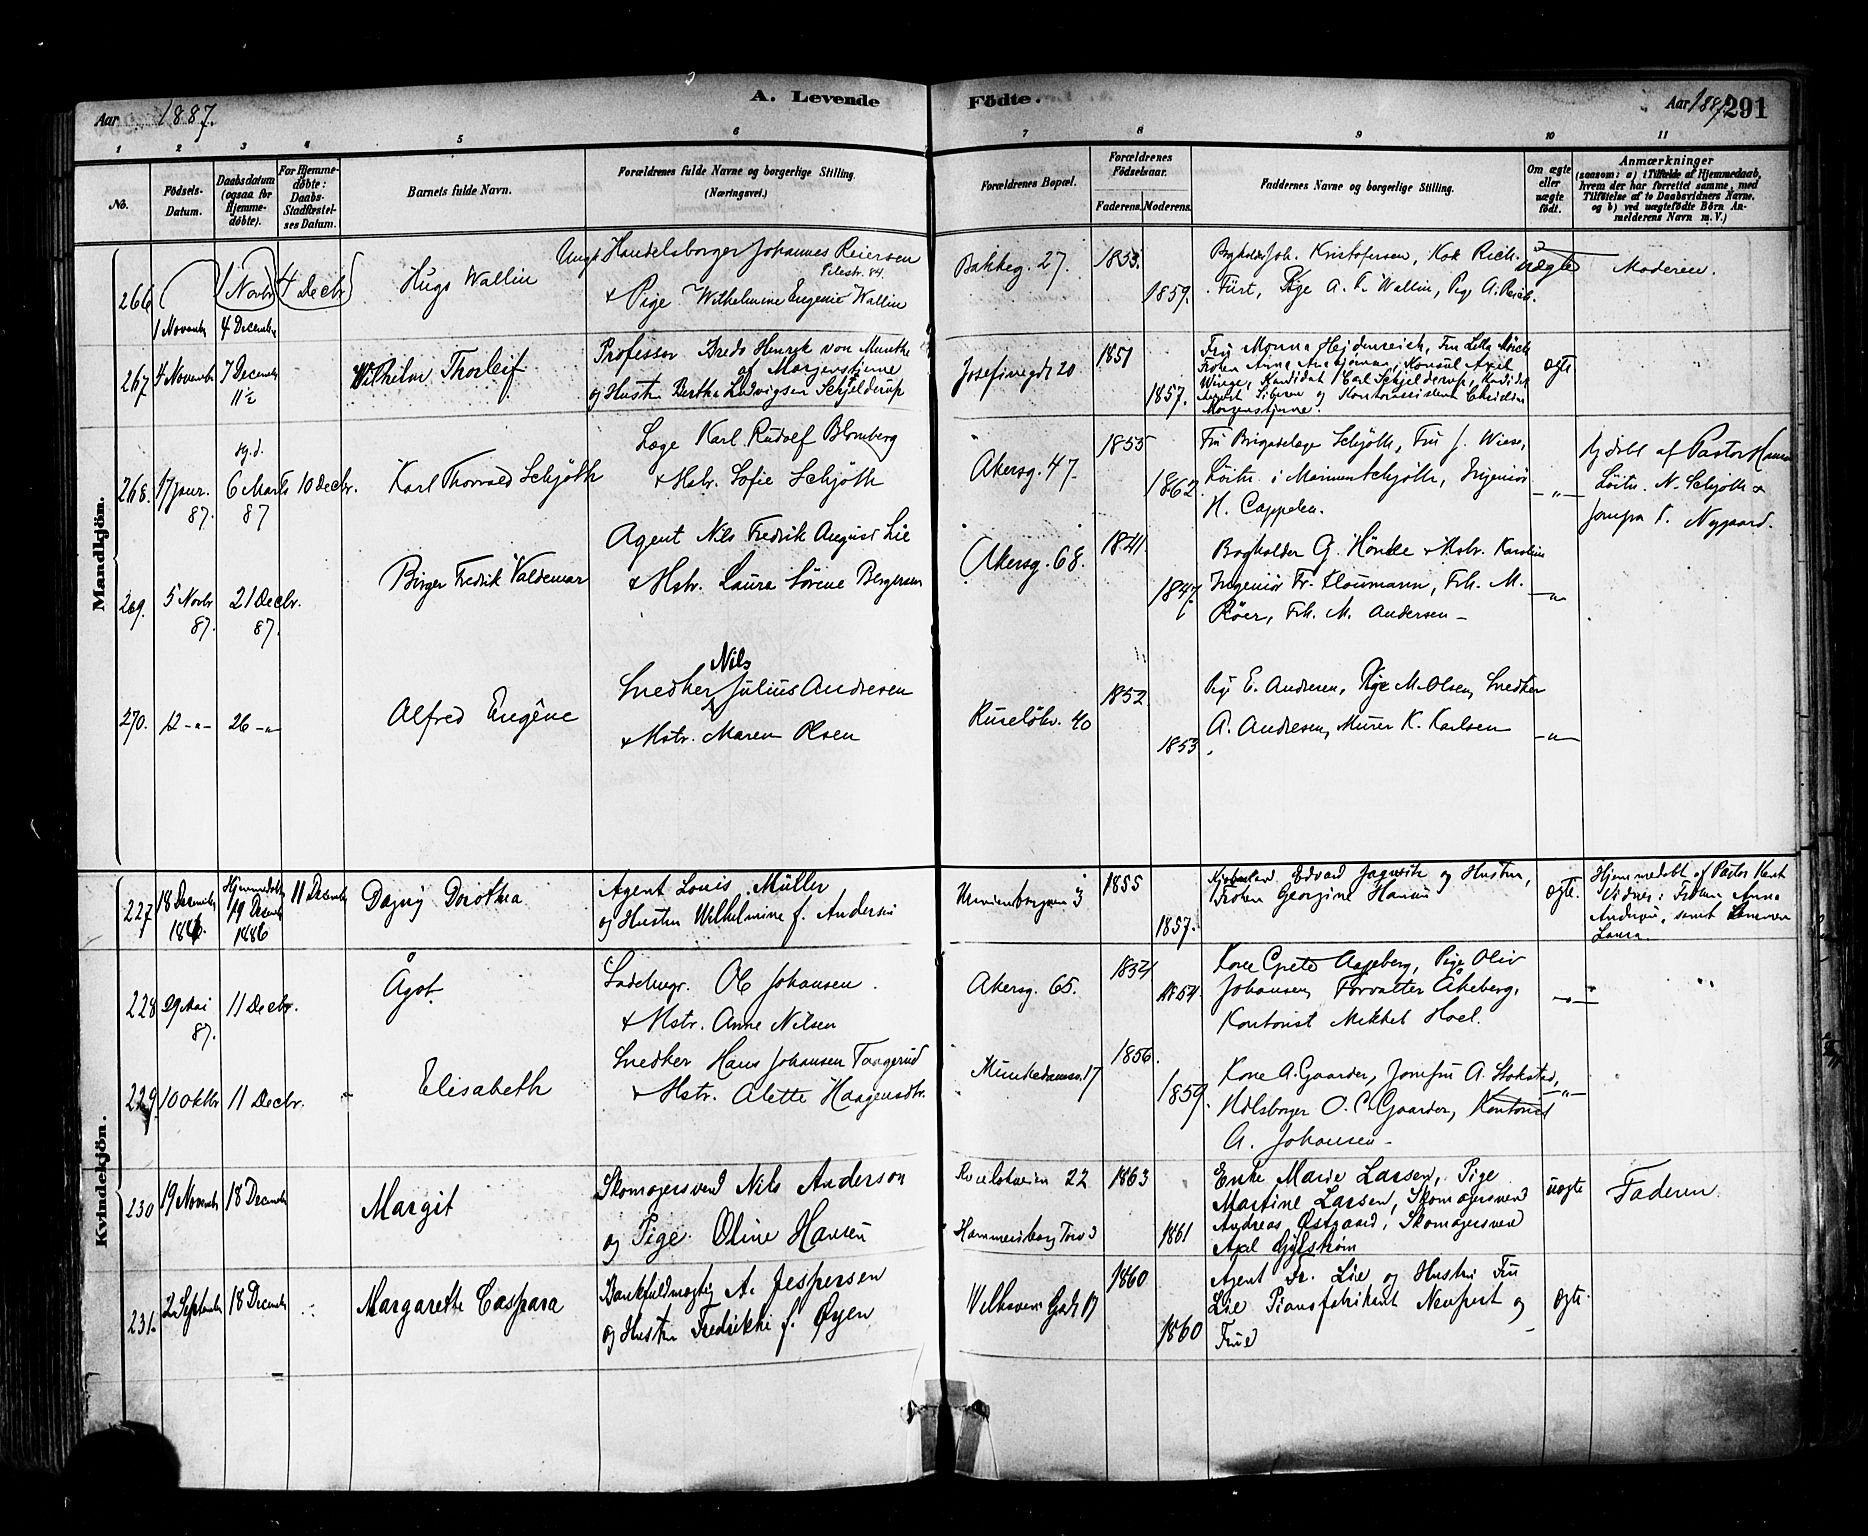 Aar 1887.
A. Levende
Födte.
Aar 1887 291
1 2 3 4 5 6 7 8 9 10 11
No.
Födsels-
Datum.
Daabsdatum
(ogsaa for
Hjemme-
döbte).
For Hjemme-
döbte:
Daabs-
Stadfæstel-
ses Datum.
Barnets fulde Navn.
Forældrenes fulde Navne og borgerlige Stilling.
(Næringsvei.)
Forældrenes Bopæl.
Forældrenes
Födselsaar.
Faderens. Moderens.
Faddernes Navne og borgerlige Stilling.
Om ægte
eller
uægte
födt.
Anmærkninger
(saasom: a) i Tilfælde af Hjemmedaab,
hvem der har forrettet samme, med
Tilföielse af to Daabsvidners Navne,
og b) ved uægtefödte Börn An-
melderens Navn m. V.)
Mandkjön.
266
1 Novbr
4 Decbr
1 November
4 December
Hugo Wallin
Ungk Handelsborger Johannes Reiersen
Pilestr. 84.
& Pige Wilhelmine Eugenie Wallin
Bakkeg. 27.
1853.
1859.
Bogholder Joh. Kristofersen, Kok Rich.
Fürst, Pige A. P. Wallin, Pig. A. Reich.
uægte
Moderen.
267
4 November
7 December
11½
Wilhelm Thorleif
Professor Bredo Henrik von Munthe
af Morgenstjerne
og Hustru Bertha Ludvigsen Schjelderup
Josefinegdt 20
1851
1857.
Fru Monna Hejdenreich, Fru Letty
Konsul Axel
Winge, Kandidat Carl Schjelderup, Kandidat
Sibbern og Kontorassistent Christian
Morgenstjerne.
ægte
268.
17 Janr.
87.
hj. d.
6 Marts
87
10 Decbr.
Karl Thorvald Schjøth
Læge Karl Rudolf Blomberg
& Hstr. Sofie Schjøth
Akersg. 47.
1855
1862
Fru Brigadelæge Schjøth, Fru J. Wiese,
Löitn. i Marinen Schjøth, Ingeniør
H. Cappelen.
-"-
hj. döbt af Pastor Hansen
Löitn. N. Schjøth &
Jomfru P. Nygaard.
269.
5 Novbr
87.
21 Decbr.
87.
Birger Fredrik Valdemar
Agent Nils Fredrik August Lie
& Hstr. Laura Sørine Bergersen
Akersg. 68.
1841.
1847.
Bogholder G. Hönke & Hstr. Karoline
Ingeniör Fr. Kloumann, Frk. M.
Röer, Frk. M. Andersen -
-"-
270.
12 -"-
26 -"-
Alfred Eugène
Nils
Snedker Julius Andresen
& Hstr. Maren Olsen
Ruselökv. 40
1852.
1853
Pige E. Andresen, Pige M. Olsen, Snedker
A. Andresen, Murer K. Karlsen
-"-
Kvindekjön.
227
18 December
1886.
Hjemmedöbt
19 Decemb
1886
11 December
Dagny Dorothea
Agent Louis Müller
og Hustru Wilhelmine f. Andersen
3
1855
1857.
Edvard og Hustru,
Fröken Georgine Hansen
ægte.
Hjemmedöbt af Pastor
Vidner: Fröken Anna
Andersen, samt
Laura.
228
29 Mai
87.
11 Decbr.
Ågot
Sadelmgr. Ole Johansen.
& Hstr. Anne Nilsen
Akersg. 65.
1854
1854.
Kone Grete Aageberg, Pige Oliv
Johansen, Forvalter Åkeberg,
Kontorist Mikkel Hoel.
-"-
229
10 Oktbr
11 Decbr.
Elisabeth
Snedker Hans Johansen Taagerud
& Hstr. Alette Haagensdtr.
Munkedamsv. 17
1856.
1859.
Kone A. Gaarder, Jomfru A. Stokstad,
Hdlsborger O. C. Gaarder, Kontorist
A. Johansen -
-"-
230
19 November
18 December
Margit
Skomagersvend Nils Anderson
og Pige Oline Hansen
Ruselökveien 22
Hammersborg Torv 3
1863
1861
Enke Marie Larsen, Pige
Martine Larsen, Skomagersvend
Andreas Østgaard, Skomagersvend
Axel Gyllström
uægte
Faderen.
231.
2 September
18 December
Margarethe Caspara
Bankfuldmægtig A. Jespersen
og Hustru Fredrikke f. Øyen
Welhavens Gade 17
1860
1860
Agent Fr. Lie og Hustru Fru
Lie Pianofabrikant Neupert og
Frue
ægte.